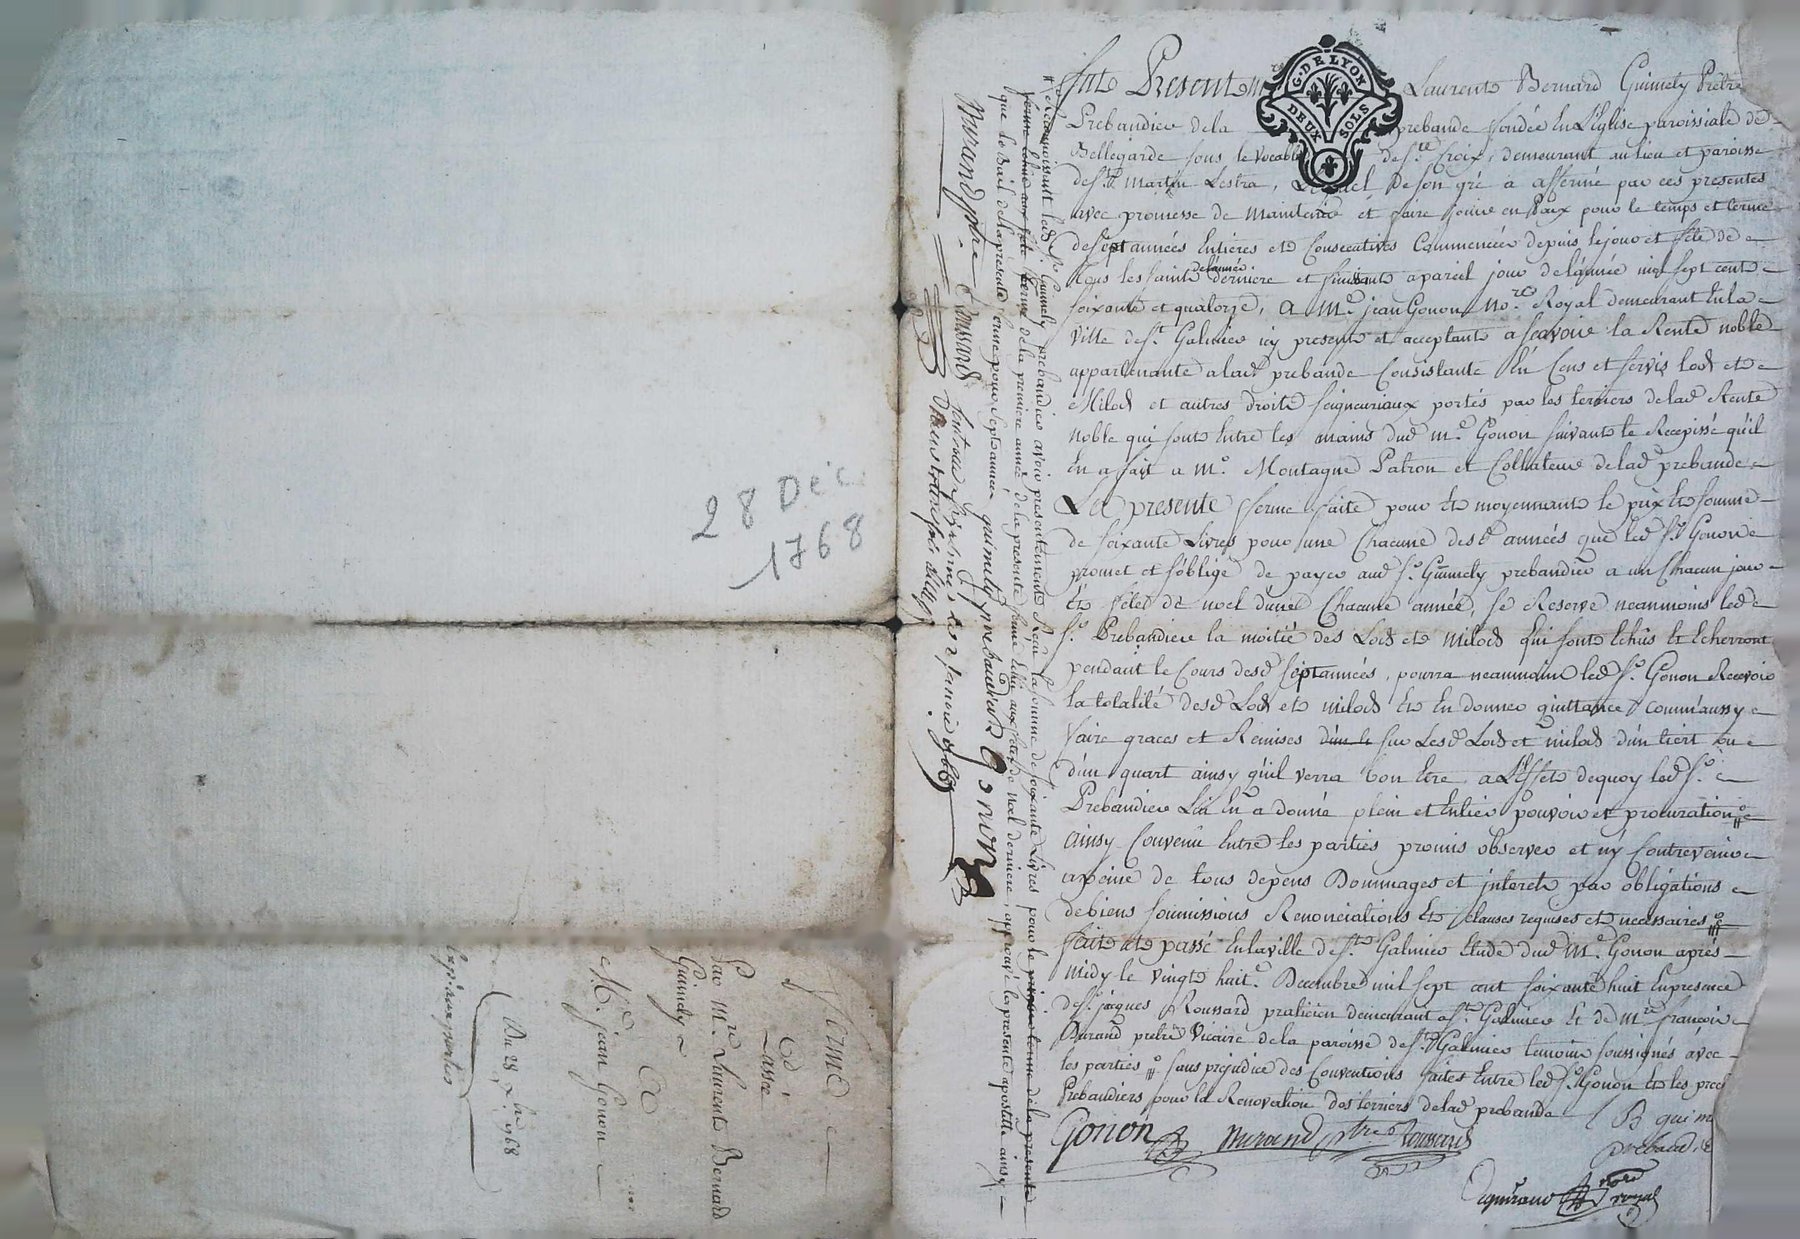 G. DE LYON
DEUX SOLS
fute Present Mre Laurent Bernard Guimely Prêtre
Prebandier de la prebande fondée En L'Eglise paroissiale de
Bellegarde sous le vocable de ste Croix, demeurant au lieu et paroisse
de st Martin Lestra, Lequel De son gré a affermé par ces presentes
avec promesse de maintenir et faire jouir en paix pour le temps et terme
de sept années Entieres et Consecutives Commencées depuis le jour et fête de
tous les saints de l'année derniere et finissant a pareil jour de l'année mil sept cent
soixante et quatorze, a Me. jean Gonon No.re Royal demeurant En la
ville de st. Galmier icy present et acceptant a scavoir la Rente noble
appartenante a lad. prebande Consistante En Cens et servis lods et
Milods et autres droits seigneuriaux portés par les terriers de lad. Rente
noble qui sont Entre les mains dud. me. Gonon suivant le Recepissé qu'il
En a fait a Mr. Montagne Patron et Collateur de lad. prebande
La presente ferme faite pour Et moyennant le prix Et somme
de soixante Livres pour une Chacune desd. années que led. sr. Gonon
promet et s'oblige de payer aud. sr. Guimely prebandier a un Chacun jour
Et fêtes de noel d'une Chacune année, se Reserve neanmoins led.
sr. Prebandier la moitié des Lods et milods qui sont Echûs Et Echerront
pendant le Cours desd. sept années, pourra neanmoins led. sr. Gonon Recevoir
la totalité desd. Lods et milods Et En donner quittance comm'aussy
faire graces et Remises d'un le sur Lesd. Lods et milods d'un tiers ou
d'un quart ainsy qu'il verra bon Etre a L'Effet de quoy led. sr.
Prebandier Lui En a donné plein et Entier pouvoir et procuration
ainsy Convenû Entre les parties promis observer et n'y Contrevenir
a peine de tous depens Dommages et interets par obligations
de biens soumissions Renonciations Et clauses requises et necessaires
fait et passé En la ville de st. Galmier Etude dud. Me. Gonon après
midy le vingt huit. Decembre mil sept cent soixante huit En presence
de sr. jacques Roussard praticien demeurant a st. Galmier Et de Mre françois
Durand pretre Vicaire de la paroisse de st. Galmier temoins soussignés avec
les parties sans prejudice des Conventions faites Entre led. sr. Gonon Et les prec
Prebandiers pour la Renovation des terriers de lad. prebande
L B guim
prebandie
Gonon Durand ptre Roussard
nore royal
Reconnoissant led. sr. Guimely prebandier avoir presentement Recu la somme de soixante Livres pour le prix et terme de la presente
ferme de la premiere année de la presente ferme Echu aux fetes de noel derniere, approuvé la presente apostille ainsy
que le Bail de la presente ferme pour sept années guimely prebandier Gonon
Durand ptre Roussard
28 Dec
1768
ferme
Passée
Par Mre. Laurent Bernard
Guimely
a
Me. jean Gonon
Du 28 Xbre 1768